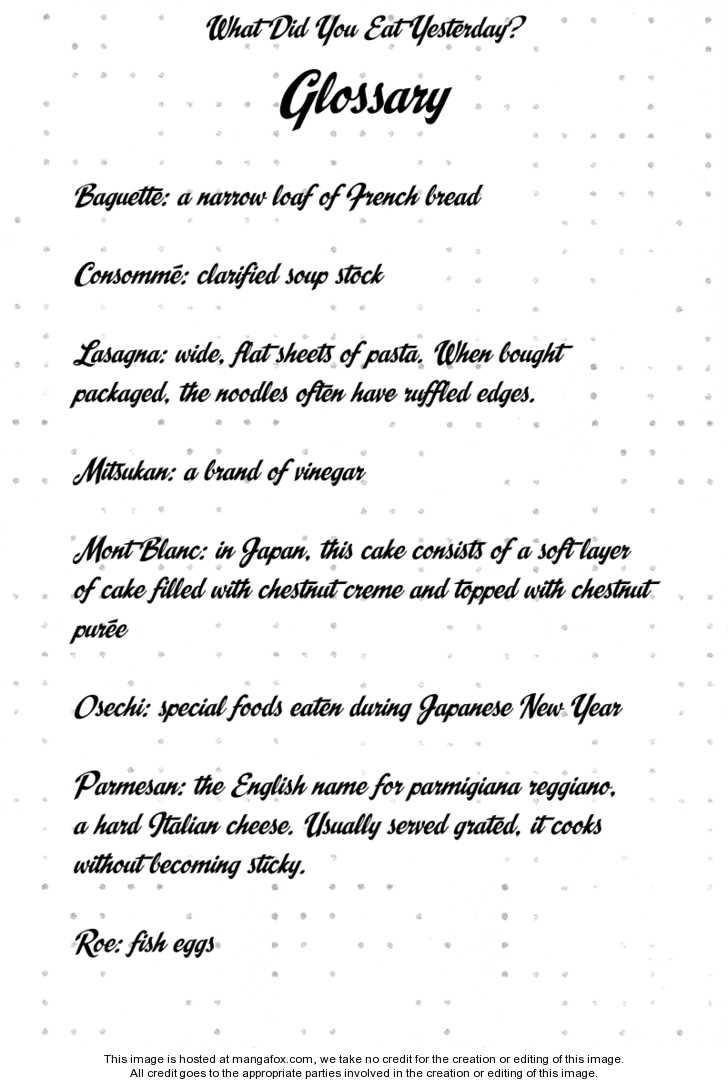 What Did You Eat Yesterday?
Glossary
Baguette: a narrow loaf of French bread
Consommé: clarified soup stock
Lasagna: wide, flat sheets of pasta. When bought
packaged, the noodles often have ruffled edges.
Mitsukan: a brand of vinegar
Mont Blanc: in Japan, this cake consists of a soft layer
of cake filled with chestnut creme and topped with chestnut
purée
Osechi: special foods eaten during Japanese New Year
Parmesan: the English name for parmigiana reggiano,
a hard Italian cheese. Usually served grated, it cooks
without becoming sticky.
Roe: fish eggs
This image is hosted at mangafox.com, we take no credit for the creation or editing of this image.
All credit goes to the appropriate parties involved in the creation or editing of this image.